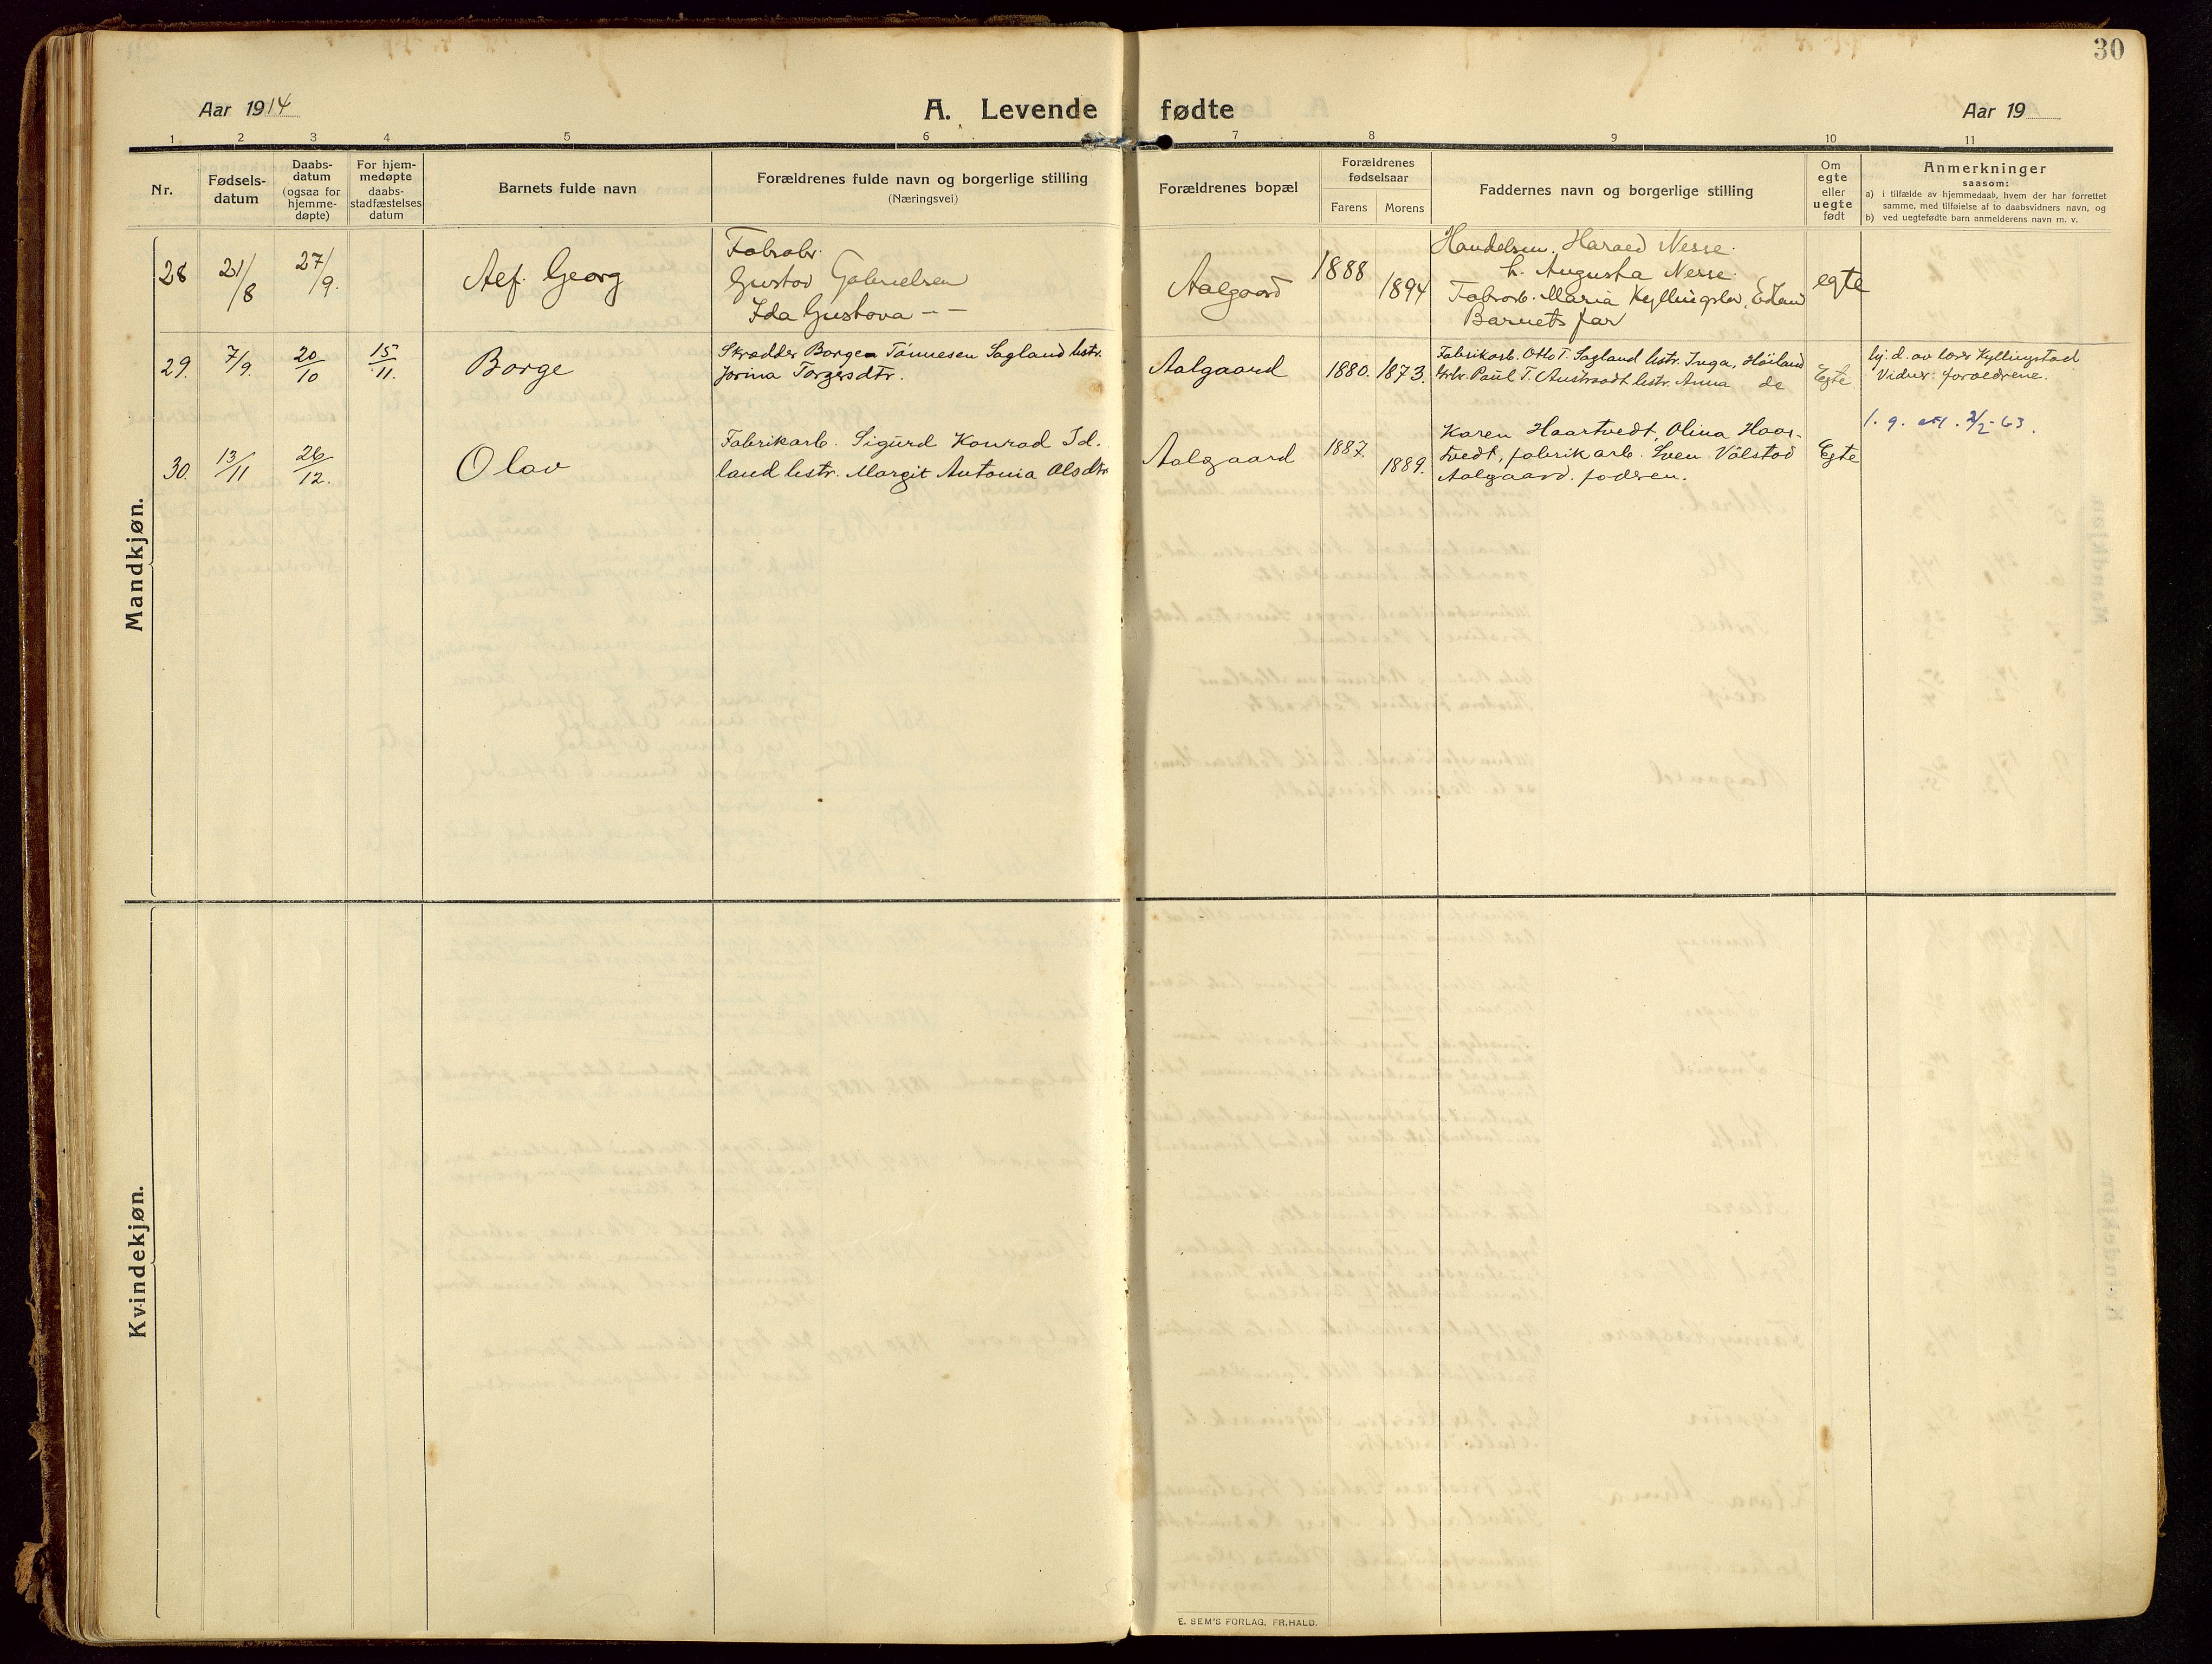 30
Aar 1914
A. Levende fødte
Aar 19
1 2 3 4 5 6 7 8 9 10 11
Nr.
Fødsels-
datum
Daabs-
datum
(ogsaa for
hjemme-
døpte)
For hjem-
medøpte
daabs-
stadfæstelses
datum
Barnets fulde navn
Forældrenes fulde navn og borgerlige stilling
(Næringsvei)
Forældrenes bopæl
Forældrenes
fødselsaar
Farens Morens
Faddernes navn og borgerlige stilling
Om
egte
eller
uegte
født
Anmerkninger
saasom:
a) i tilfælde av hjemmedaab, hvem der har forrettet
samme, med tilføielse af to daabsvidners navn, og
b) ved uegtefødte barn anmelderens navn m. v.
Mandkjøn.
28 21/8 27/9. Alf. Georg
Gustav Gabrielsen
Ida Gustava - -
Aalgaard 1888 1894
Handelsm. Harald Nesse.
h. Augusta Nesse.
Fabrarb. Maria Kyllingstad,
Barnets far
egte
29. 7/9. 20/10 15/11. Borge
Skrædder Borge Tönnesen Sagland hstr.
Jorina Torgersdtr.
Aalgaard 1880. 1873.
Fabrikarb. Otto T. Sagland hstr. Inga, Höiland
Grbr. Paul T. Austraadt hstr. Anna de
Egte
hj. d. av lærer Kyllingstad
Vidner: forældrene.
30. 13/11 26/12. Olav
Fabrikarb. Sigurd Konrad Id-
land hstr. Margit Antonia Olsdtr
Aalgaard 1887. 1889.
Karen Haartvedt, Olina Haar-
tvedt, fabrikarb. Sven Válstad
Aalgaard. faderen.
Egte
1. g. att. 2/2-63.
Kvindekjøn.
E. SEM'S FORLAG, FR.HALD.